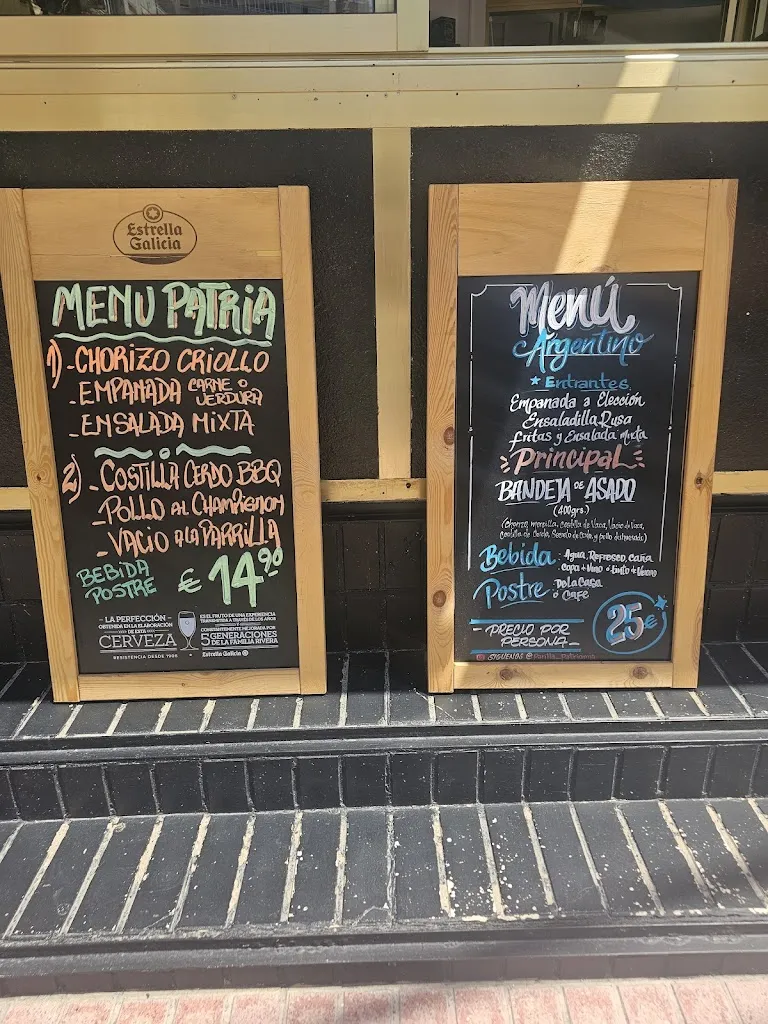 Estrella
Galicia
MENU PATRIA
1) - CHORIZO CRIOLLO
- EMPANADA CARNE O
VERDURA
- ENSALADA MIXTA
2) - COSTILLA CERDO BBQ
- POLLO AL CHAMPIGNON
- VACIO A LA PARRILLA
BEBIDA
POSTRE
€ 14'90
- LA PERFECCIÓN -
OBTENIDA EN LA ELABORACIÓN
DE ESTA
CERVEZA
RESISTENCIA DESDE 1906
ES EL FRUTO DE UNA EXPERIENCIA
TRANSMITIDA A TRAVÉS DE LOS AÑOS
Y
CONSTANTEMENTE MEJORADA POR
5 GENERACIONES
DE LA FAMILIA RIVERA
Estrella Galicia
Menú
Argentino
★ Entrantes
Empanada a Elección
Ensaladilla Rusa
fritas y Ensalada Mixta
Principal
BANDEJA DE ASADO
(400grs.)
(Chorizo, morcilla, costilla de Vaca, Vacio de Vaca,
costilla de Cerdo, Secreto de Cerdo, y pollo
Bebida . Agua, Refresco, Caña
Copa
Postre De La Casa
ó CAFÉ
- PRECIO POR
PERSONA -
25€
SIGUENOS @